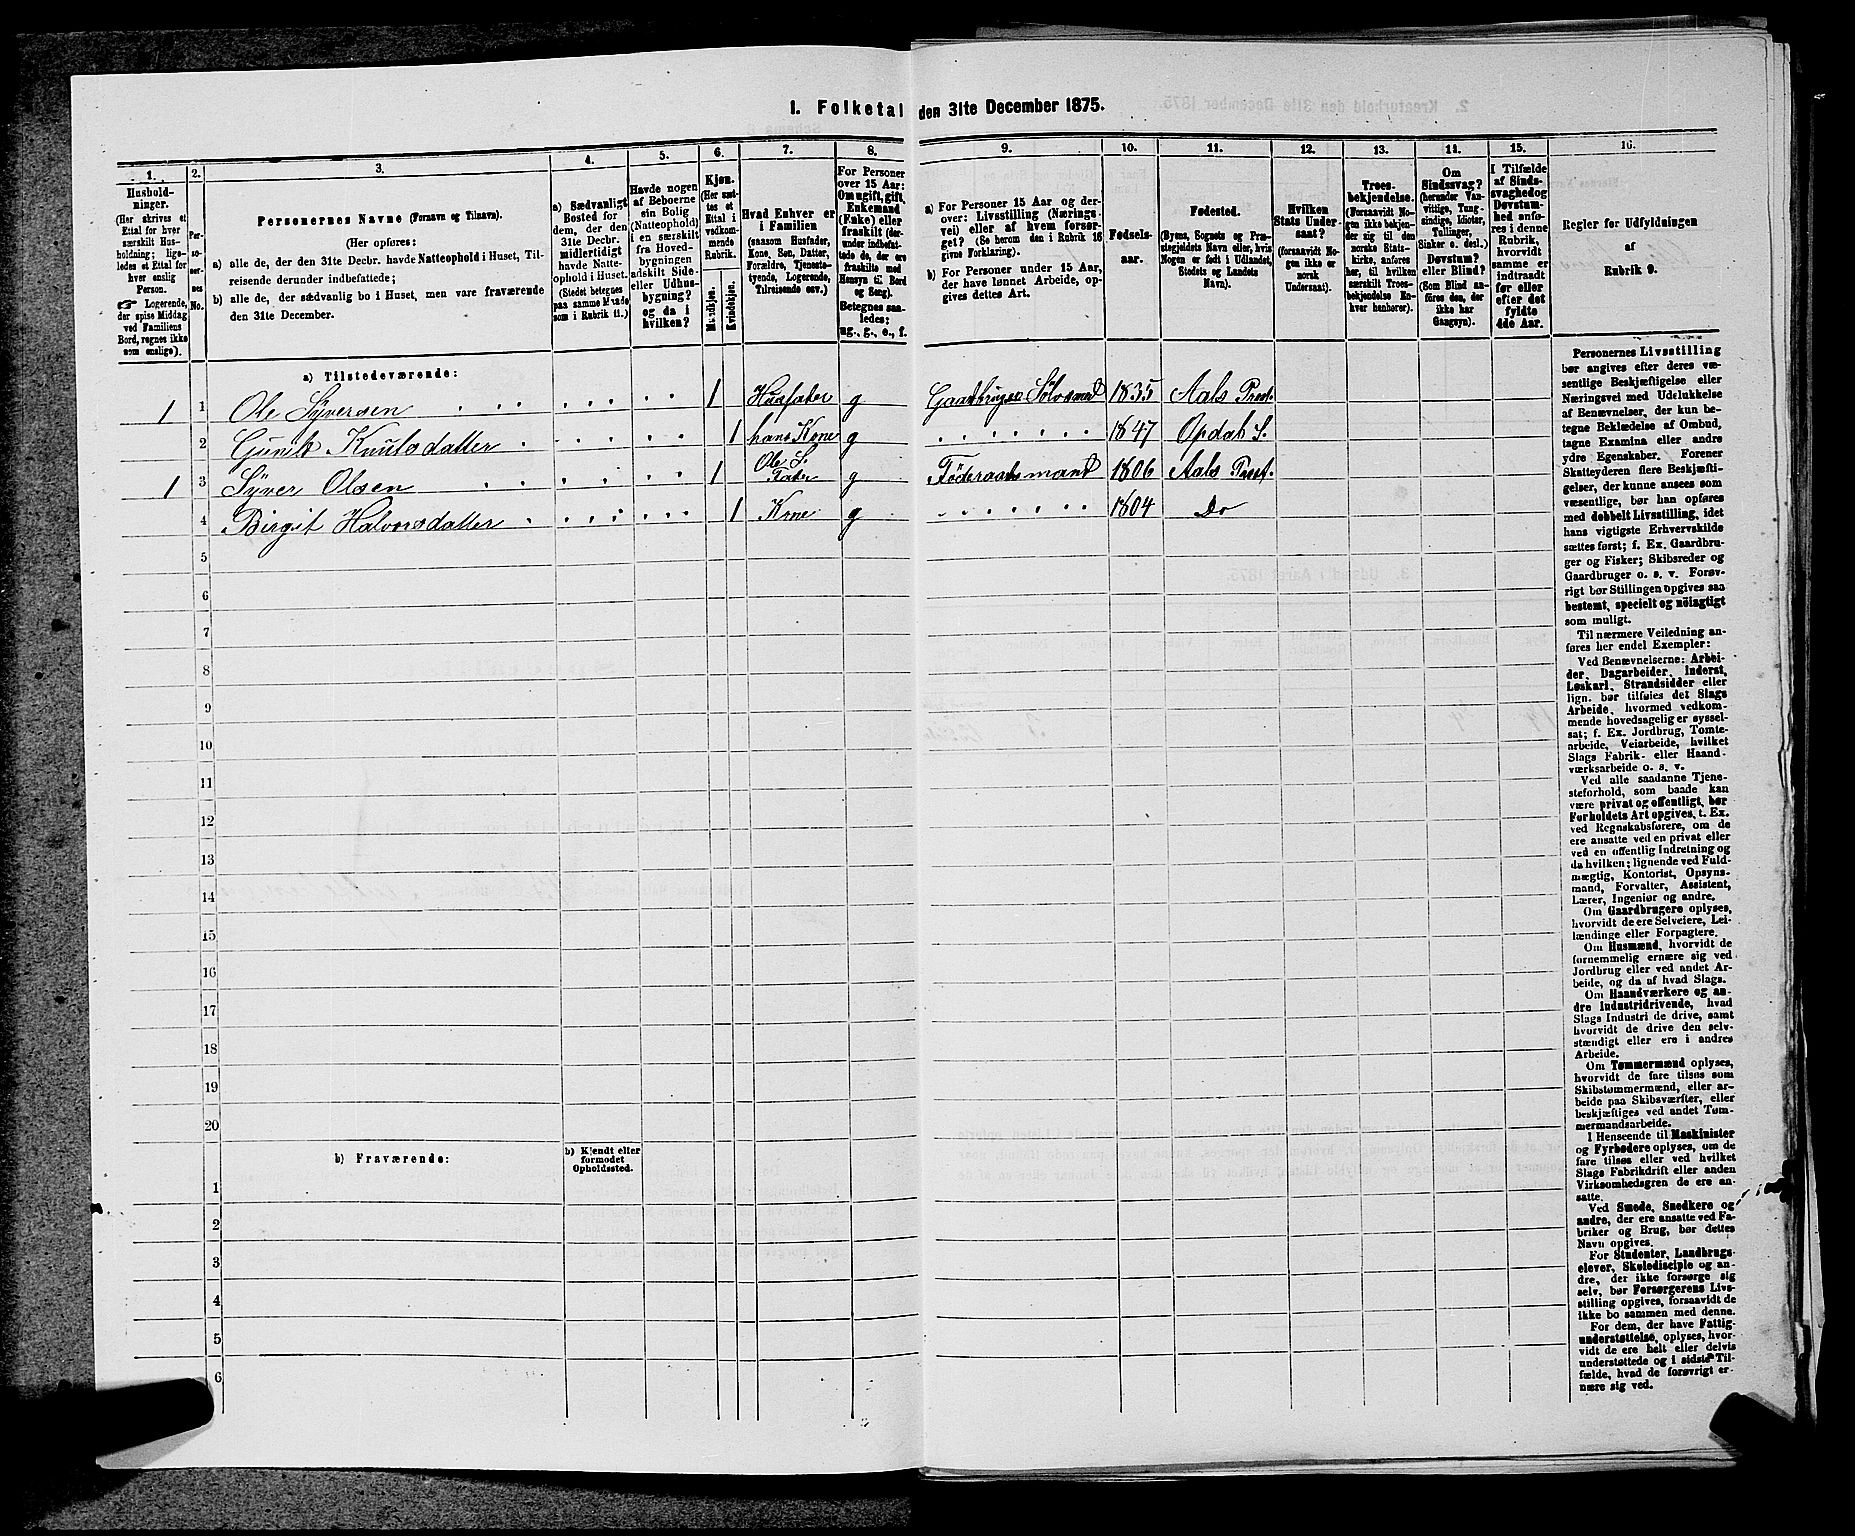 I. Folketal den 31te December 1875.
1. 2. 3. 4. 5. 6. 7. 8. 9. 10. 11. 12. 13. 14. 15. 16.
Hushold-
ninger.
(Her skrives et
Ettal for hver
særskilt Hus-
holdning; lige-
ledes et Ettal for
hver enslig
Person.
☞ Logerende,
der spise Middag
ved Familiens
Bord, regnes ikke
som enslige).
Per-
so-
ner-
nes
No.
Personernes Navne (Fornavn og Tilnavn).
(Her opføres:
a) alle de, der den 31te Decbr. havde Natteophold i Huset, Til-
reisende derunder indbefattede;
b) alle de, der sædvanlig bo i Huset, men vare fraværende
den 31te December.
a) Sædvanligt
Bosted for
dem, der den
31te Decbr.
midlertidigt
havde Natte-
ophold i Huset.
(Stedet betegnes
paa samme Maade
som i Rubrik 11.)
Havde nogen
af Beboerne
sin Bolig
(Natteophold)
i en særskilt
fra Hoved-
bygningen
adskilt Side-
eller Udhus-
bygning?
og da i
hvilken?
Kjøn.
(Her sæt-
tes et
Ettal i
vedkom-
mende
Rubrik.
Mandkjøn.
Kvindekjøn.
Hvad Enhver er
i Familien
(saasom Husfader,
Kone, Søn, Datter,
Forældre, Tjeneste-
tyende, Logerende,
Tilreisende osv.)
For Personer
over 15 Aar:
Om ugift, gift,
Enkemand
(Enke) eller
fraskilt (der-
under indbefat-
tede de, der ere
fraskilte med
Hensyn til Bord
og Seng).
Betegnes saa-
ledes:
ug., g., e., f.
a) For Personer 15 Aar og der-
over: Livsstilling (Nærings-
vei) eller af hvem forsør-
get? (Se herom den i Rubrik 16
givne Forklaring).
b) For Personer under 15 Aar,
der have lønnet Arbeide, op-
gives dettes Art.
Fødsels-
aar.
Fødested.
(Byens, Sognets og Præ-
stegjeldets Navn eller, hvis
Nogen er født i Udlandet,
Stedets og Landets
Navn).
Hvilken
Stats Under-
saat?
(forsaavidt No-
gen ikke er
norsk
Undersaat).
Troes-
bekjendelse.
(Forsaavidt No-
gen ikke bekjen-
der sig til den
norske Stats-
kirke, anføres
her, til hvilken
særskilt Troes-
bekjendelse En-
hver henhører).
Om
Sindssvag?
(herunder Van-
vittige, Tung-
sindige, Idioter,
Tullinger,
Sinker o. desl.)
Døvstum?
eller Blind?
(Som Blind an-
føres den, der
ikke har
Gangsyn).
I Tilfælde
af Sinds-
svaghed og
Døvstum-
hed anfø-
res i denne
Rubrik,
hvorvidt
samme er
indtraadt
før eller
efter det
fyldte
4de Aar.
Regler for Udfyldningen
af
Rubrik 9.
a) Tilstedeværende:
1 1 Ole Syversen 1 Husfader g Gaardbruger Sølvsmed 1835 Aals Prest.
2 Gunild Knutsdatter 1 hans Kone g 1847 Opdal S.
1 3 Syver Olsen 1 Ole S. Fader g Föderaadsmand 1806 Aals Prest.
4 Birgit Halvorsdatter 1 Kone g 1804 Do
5
6
7
8
9
10
11
12
13
14
15
16
17
18
19
20
b) Fraværende:
b) Kjendt eller
formodet
Opholdssted.
1
2
3
4
5
6
Personernes Livsstilling
bør angives efter deres væ-
sentlige Beskjæftigelse eller
Næringsvei med Udelukkelse
af Benævnelser, der kun be-
tegne Beklædelse af Ombud,
tagne Examina eller andre
ydre Egenskaber. Forener
Skatteyderen flere Beskjæfti-
gelser, der kunne ansees som
væsentlige, bør han opføres
med dobbelt Livsstilling, idet
hans vigtigste Erhvervskilde
sættes først; f. Ex. Gaardbru-
ger og Fisker; Skibsreder og
Gaardbruger o. s. v. Forøv-
rigt bør Stillingen opgives saa
bestemt, specielt og nöiagtigt
som muligt.
Til nærmere Veiledning an-
føres her endel Exempler:
Ved Benævnelserne: Arbei-
der, Dagarbeider, Inderst,
Løskarl, Strandsidder eller
lign. bør tilføies det Slags
Arbeide, hvormed vedkom-
mende hovedsagelig er syssel-
sat; f. Ex. Jordbrug, Tomte-
arbeide, Veiarbeide, hvilket
Slags Fabrik- eller Haand-
værksarbeide o. s. v.
Ved alle saadanne Tjene-
steforhold, som baade kan
være privat og offentligt, bør
Forholdets Art opgives, t. Ex.
ved Regnskabsførere, om de
ere ansatte ved en privat eller
ved en offentlig Indretning og
da hvilken; lignende ved Fuld-
mægtig, Kontorist, Opsyns-
mand, Forvalter, Assistent,
Lærer, Ingeniør og andre.
Om Gaardbrugere oplyses,
hvorvidt de ere Selveiere, Lei-
lændinge eller Forpagtere.
Om Husmænd, hvorvidt de
fornemmelig ernære sig ved
Jordbrug eller ved andet Ar-
beide, og da af hvad Slags.
Om Haandværkere og an-
dre Industridrivende, hvad
Slags Industri de drive, samt
hvorvidt de drive den selv-
stændigt eller ere i andres
Arbeide.
Om Tømmermænd oplyses,
hvorvidt de fare tilsøs som
Skibstømmermænd, eller ar-
beide paa Skibsværfter, eller
beskjæftiges ved andet Tøm-
mermandsarbeide.
I Henseende til Maskinister
og Fyrbødere oplyses, om de
fare tilsøs eller ved hvilket
Slags Fabrikdrift eller anden
Virksomhedsgren de ere an-
satte.
Ved Smede, Snedkere og
andre, der ere ansatte ved Fa-
briker og Brug, bør dettes
Navn opgives.
For Studenter, Landbrugs-
elever, Skoledisciple og an-
dre, der ikke forsørge sig
selv, bør Forsørgerens Livs-
stilling opgives, forsaavidt de
ikke bo sammen med denne.
For dem, der have Fattig-
understøttelse, oplyses, hvor-
vidt de ere helt eller delvis
understøttede og i sidste Til-
fælde, hvad de forøvrigt er-
nære sig ved.